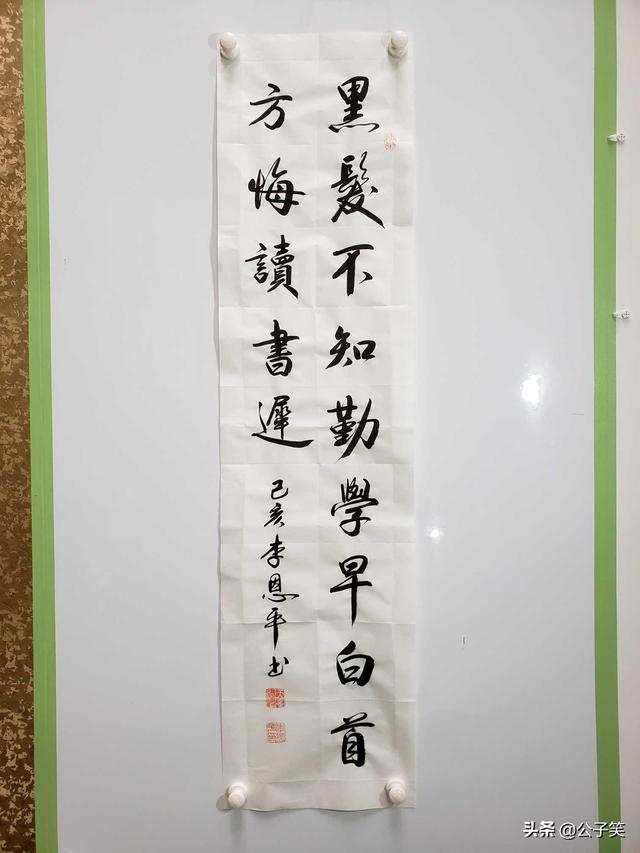 黑髮不知勤學早白首
方悔讀書遲
己亥李恩平书
头条 @公子笑